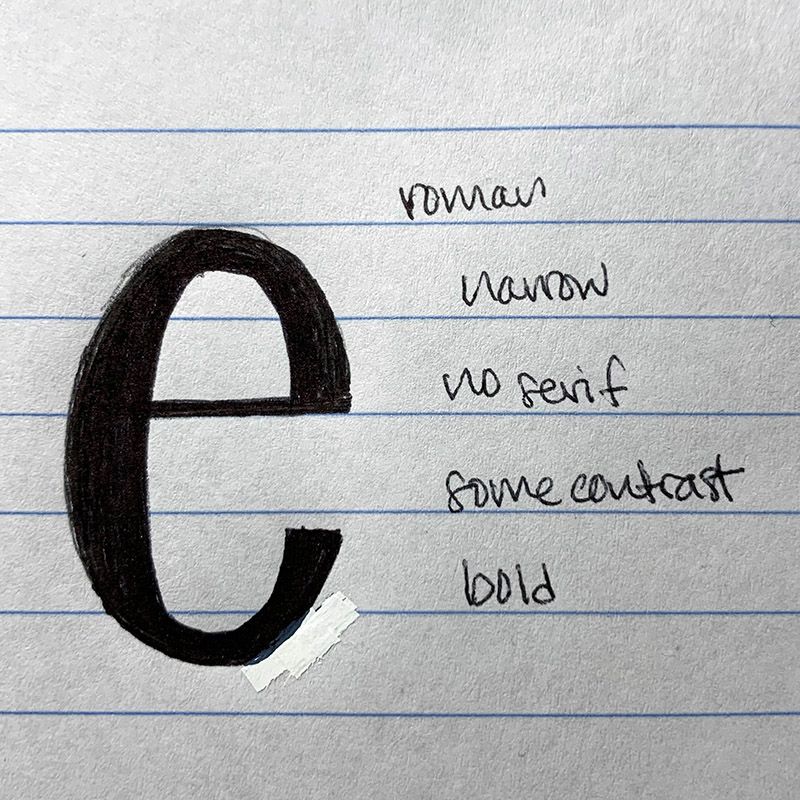 e
roman
narrow
no serif
some contrast
bold